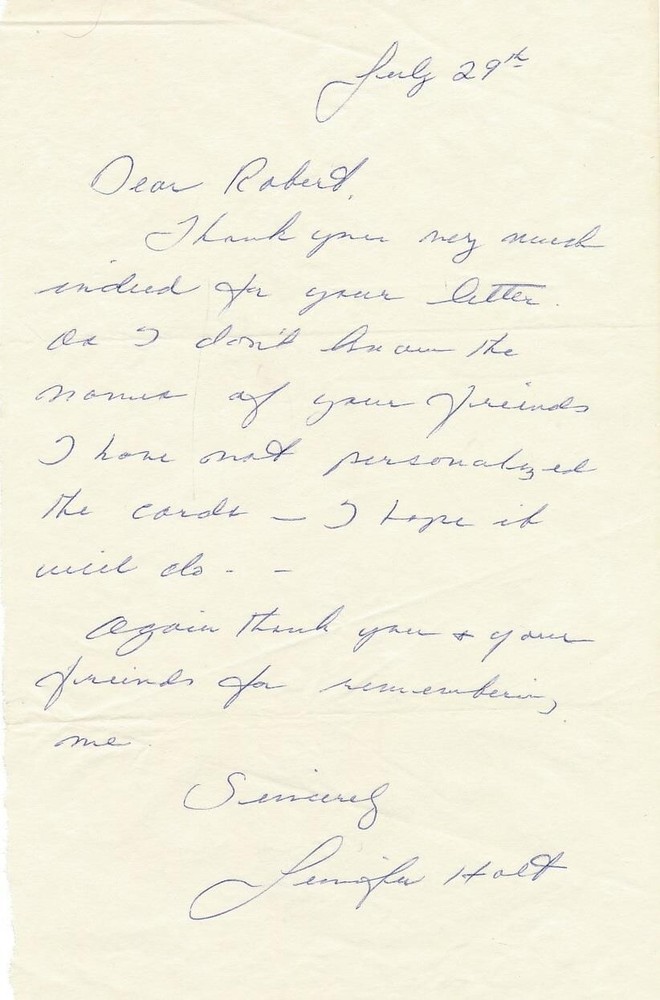 July 29th
Dear Robert,
Thank you very much
indeed for your letter.
As I don't know the
names of your friends
I have not personalized
the cards - I hope it
will do - -
Again thank you & your
friends for remembering
me.
Sincerely
Jennifer Holt